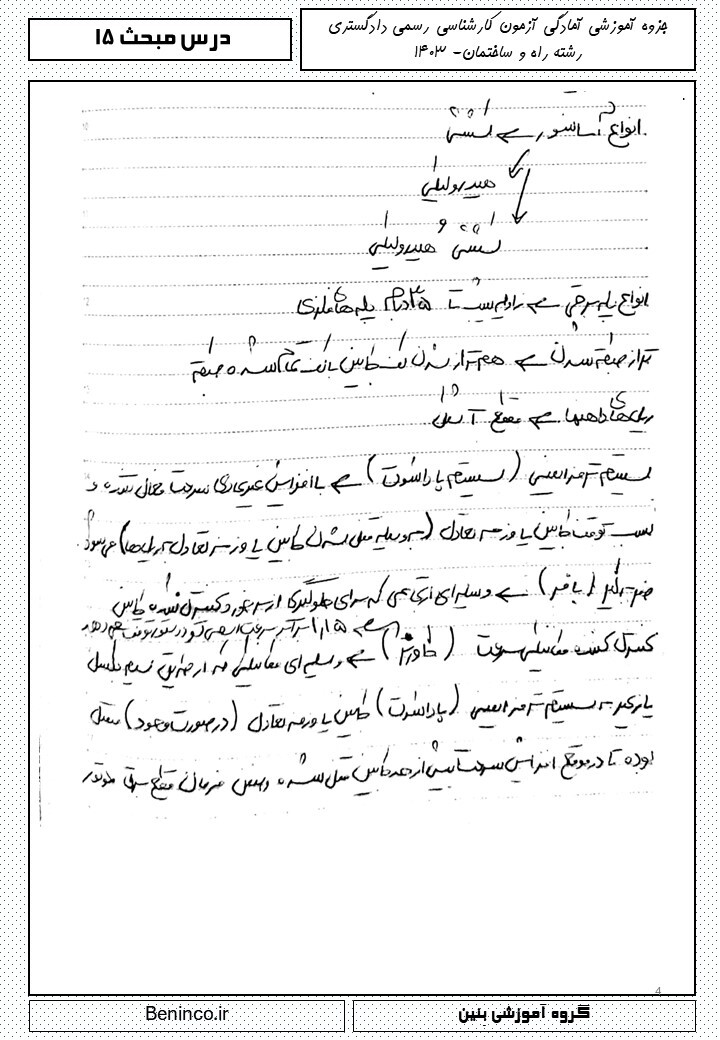 جزوه آموزشی آمادگی آزمون کارشناسی رسمی دادگستری
رشته راه و ساختمان- ۱۴۰۳
درس مبحث ۱۵
انواع آسانسور ← کششی
هیدرولیکی
کششی و هیدرولیکی
انواع پله برقی ← زاویه شیب تا ۳۵ درجه پله های فلزی
تراز طبقه شدن ← هم تراز شدن کف کابین با کف تمام شده طبقه
ریل های راهنما ← مقطع T شکل
سیستم ترمز ایمنی (سیستم پاراشوت) ← با افزایش غیرعادی سرعت فعال شده و
سبب توقف کابین یا وزنه تعادل (به وسیله قفل شدن کابین یا وزنه تعادل به ریل‌ها) می‌شود
ضربه‌گیر (بافر) ← وسیله‌ای ارتجاعی که برای جلوگیری از برخورد کنترل نشده کابین
کنترل کننده مکانیکی سرعت (گاورنر) ← وسیله‌ای مکانیکی که از طریق سیم بکسل
یا زنجیر به سیستم ترمز ایمنی (پاراشوت) کابین یا وزنه تعادل (در صورت وجود) متصل
بوده تا در موقع افزایش سرعت بیش از حد کابین عمل نموده و ضمن فرمان قطع برق موتور
4
گروه آموزشی بنین
Beninco.ir